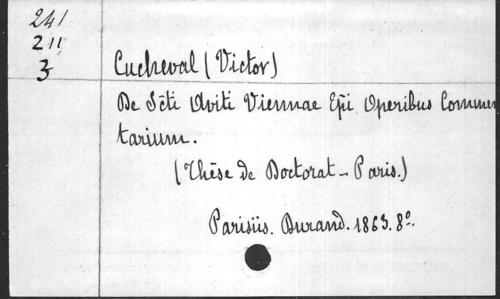 241
211
3
Cucheval (Victor)
De Scti Aviti Viennae Epi Operibus Commen
tarium.
(Thèse de Doctorat - Paris.)
Parisiis. Durand. 1863. 8º.